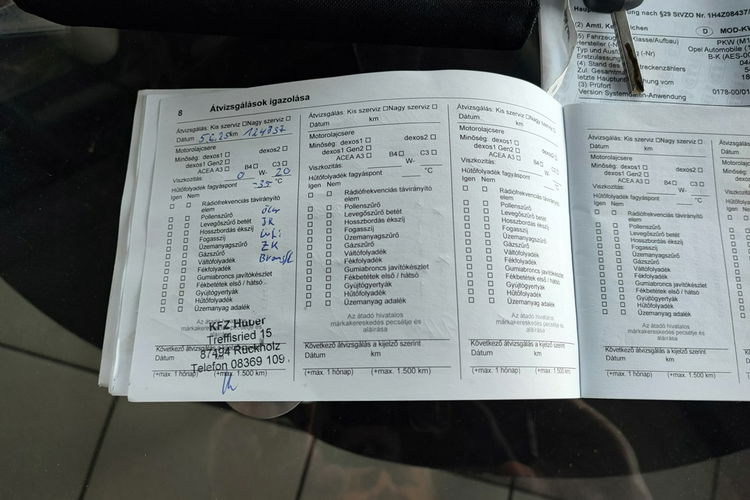 8 Átvizsgálások igazolása
Átvizsgálás: Kis szerviz Nagy szerviz
Dátum 5.6.25 km 124937
Motorolajcsere
Minőség: dexos1 dexos2
dexos1 Gen2
ACEA A3 B4 C3
Viszkozitás: 0 W- 20
Hűtőfolyadék fagyáspont -35 °C
Igen Nem
Rádiófrekvenciás távirányító
elem
Pollenszűrő
Levegőszűrő betét
Hosszbordás ékszíj
Fogasszíj
Üzemanyagszűrő
Gázszűrő
Váltófolyadék
Fékfolyadék
Gumiabroncs javítókészlet
Fékbetétek első / hátsó
Gyújtógyertyák
Hűtőfolyadék
Üzemanyag adalék
KFZ Huber
Treffisried 15
87494 Rückholz
Telefon 08369 109
Következő átvizsgálás a kijelző szerint
Dátum km
(+max. 1 hónap) (+max. 1.500 km)
Átvizsgálás: Kis szerviz Nagy szerviz
Dátum km
Motorolajcsere
Minőség: dexos1 dexos2
dexos1 Gen2
ACEA A3 B4 C3
Viszkozitás: W-
Hűtőfolyadék fagyáspont °C
Igen Nem
Rádiófrekvenciás távirányító
elem
Pollenszűrő
Levegőszűrő betét
Hosszbordás ékszíj
Fogasszíj
Üzemanyagszűrő
Gázszűrő
Váltófolyadék
Fékfolyadék
Gumiabroncs javítókészlet
Fékbetétek első / hátsó
Gyújtógyertyák
Hűtőfolyadék
Üzemanyag adalék
Az átadó hivatalos
márkakereskedés pecsétje és
aláírása
Következő átvizsgálás a kijelző szerint
Dátum km
(+max. 1 hónap) (+max. 1.500 km)
Átvizsgálás: Kis szerviz Nagy szerviz
Dátum km
Motorolajcsere
Minőség: dexos1 dexos2
dexos1 Gen2
ACEA A3 B4 C3
Viszkozitás: W-
Hűtőfolyadék fagyáspont °C
Igen Nem
Rádiófrekvenciás távirányító
elem
Pollenszűrő
Levegőszűrő betét
Hosszbordás ékszíj
Fogasszíj
Üzemanyagszűrő
Gázszűrő
Váltófolyadék
Fékfolyadék
Gumiabroncs javítókészlet
Fékbetétek első / hátsó
Gyújtógyertyák
Hűtőfolyadék
Üzemanyag adalék
Az átadó hivatalos
márkakereskedés pecsétje és
aláírása
Következő átvizsgálás a kijelző szerint
Dátum km
(+max. 1 hónap) (+max. 1.500 km)
Átvizsgálás: Kis szerviz Nagy szerviz
Dátum km
Motorolajcsere
Minőség: dexos1 dexos2
dexos1 Gen2
ACEA A3 B4 C3
Viszkozitás: W-
Hűtőfolyadék fagyáspont °C
Igen Nem
Rádiófrekvenciás távirányító
elem
Pollenszűrő
Levegőszűrő betét
Hosszbordás ékszíj
Fogasszíj
Üzemanyagszűrő
Gázszűrő
Váltófolyadék
Fékfolyadék
Gumiabroncs javítókészlet
Fékbetétek első / hátsó
Gyújtógyertyák
Hűtőfolyadék
Üzemanyag adalék
Az átadó hivatalos
márkakereskedés pecsétje és
aláírása
Következő átvizsgálás a kijelző szerint
Dátum km
(+max. 1 hónap) (+max. 1.500 km)
nach §29 StVZO Nr.
(2) Amtl.
D MOD-
PKW (M1
Opel Automobile
B-K (AES-00
(4) Stand des
0178-00/01